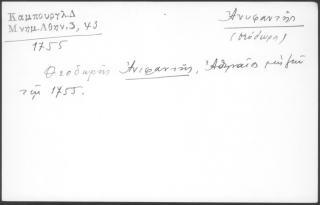 Καμπουργλ.Δ
Μνημ.Αθην.3, 43
1755
Ἀνυφαντής
(Θεόδωρος)
Θεοδωρής Ἀνυφαντής, Ἀθηναῖος
τῷ 1755.